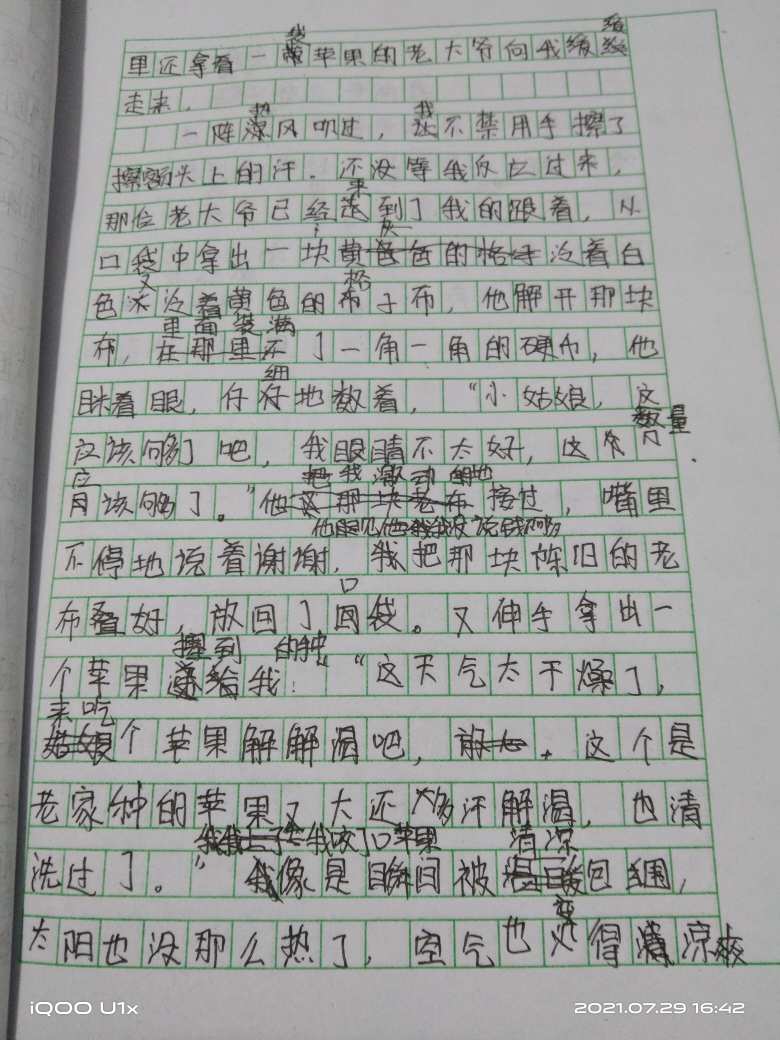 里还拿着一袋苹果的老大爷向我缓缓
走来。
一阵热风吹过，我不禁用手擦了
擦额头上的汗。还没等我反应过来，
那位老大爷已经来到了我的跟着，从
口袋中拿出一块灰色泛着白
色又泛着黄色的格子布，他解开那块
布，里面装满了一角一角的硬币，他
眯着眼，仔细地数着，“小姑娘，这
应该够了吧，我眼睛不太好，这数量
应该够了。”他接过，嘴里
不停地说着谢谢，我把那块陈旧的老
布叠好，放回了口袋。又伸手拿出一
个苹果
“这天气太干燥了，
来吃个苹果解解渴吧，这个是
老家种的苹果又大还多汁解渴，也清
洗过了。”我咬了口苹果
像是瞬间被清凉包围，
太阳也没那么热了，空气也变得清凉爽
iQOO U1x
2021.07.29 16:42